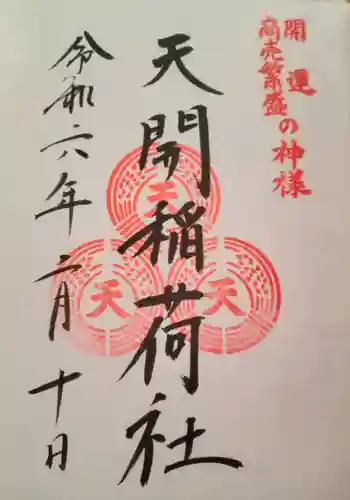 開運
商売繁盛の神様
天開稲荷社
天
天
令和六年二月十日